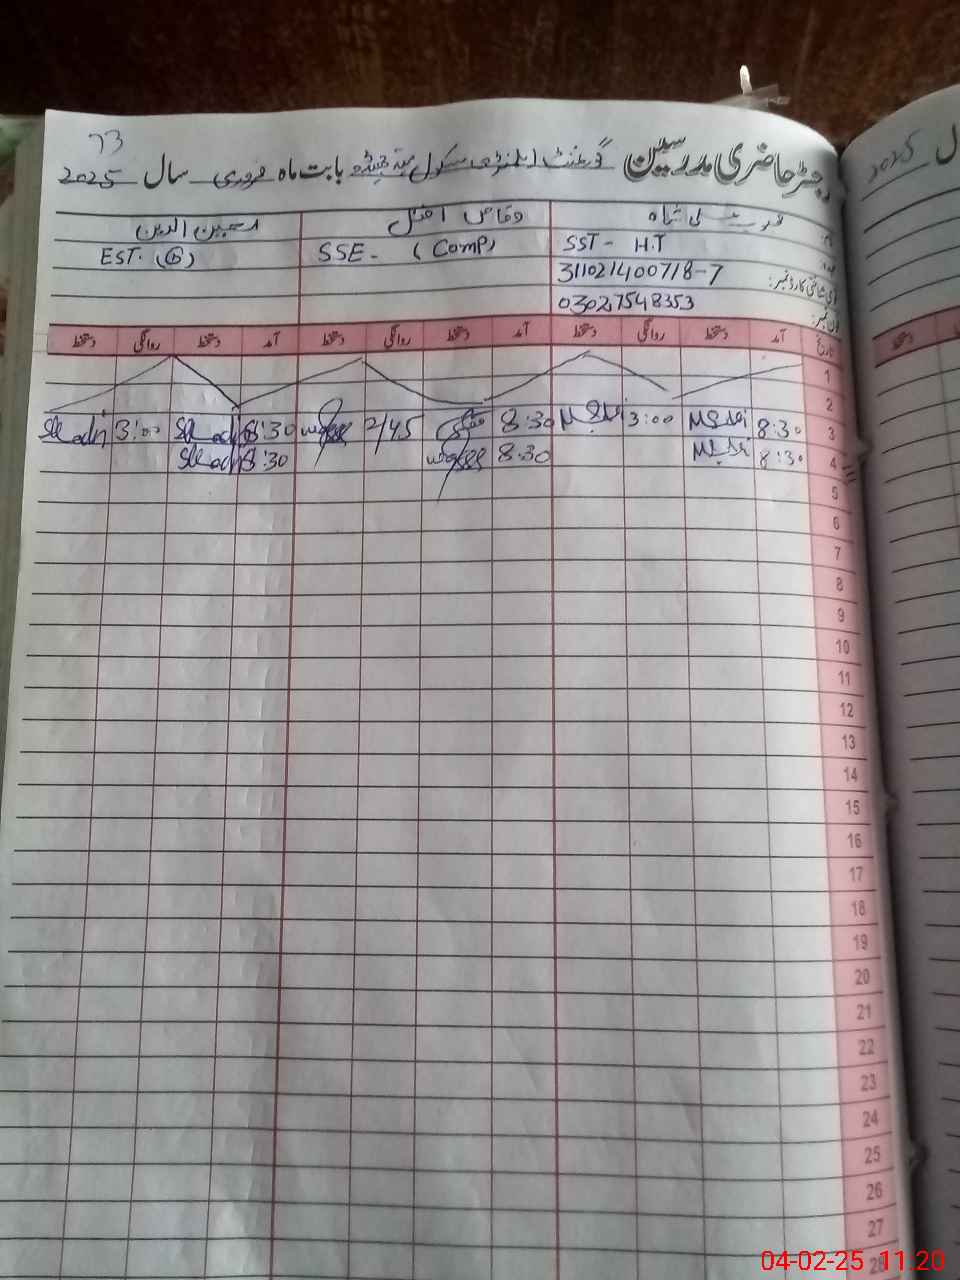 73
رجسٹر حاضری مدرسین گورنمنٹ ایلیمنٹری سکول بابت ماہ فروری سال 2025
وقاص افضل
SST - H.T SSE - (Comp) EST. (G)
311021400718-7
قومی شناختی کارڈ نمبر:
03027548353
فون نمبر:
تاریخ آمد دستخط روانگی دستخط آمد دستخط روانگی دستخط آمد دستخط روانگی دستخط
1
2
3 8:30 3:00 8:30 2/45 8:30 3:00
4 8:30 8:30 8:30
5
6
7
8
9
10
11
12
13
14
15
16
17
18
19
20
21
22
23
24
25
26
27
28
2025
دستخط
04-02-25 11.20